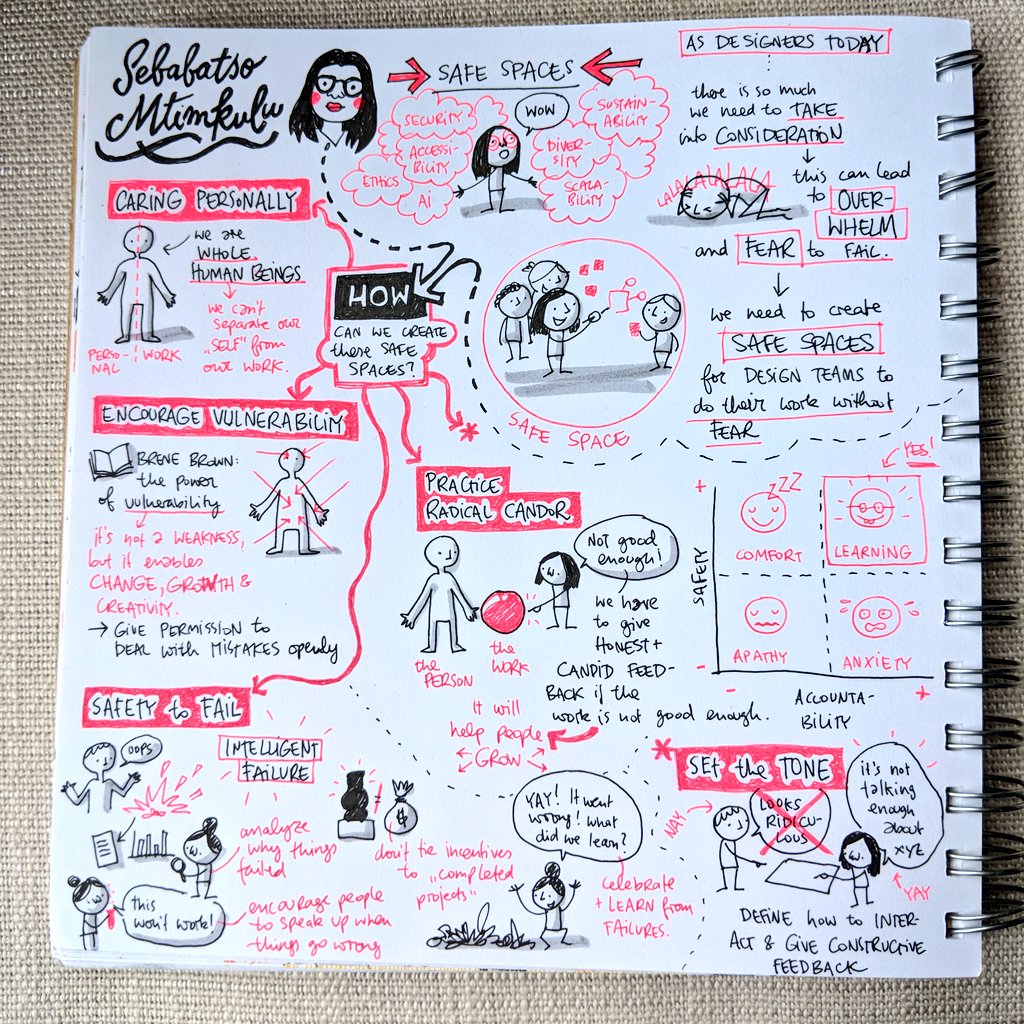 Sebabatso
Mtimkulu
SAFE SPACES
SECURITY
ACCESSI-
BILITY
ETHICS
AI
WOW
SUSTAIN-
ABILITY
DIVER-
SITY
SCALA-
BILITY
AS DESIGNERS TODAY
there is so much
we need to TAKE
into CONSIDERATION
LALALALALALA
this can lead
to OVER-
WHELM
and FEAR to FAIL.
we need to create
SAFE SPACES
for DESIGN TEAMS to
do their work without
FEAR
SAFE SPACE
HOW
CAN WE CREATE
these SAFE
SPACES?
CARING PERSONALLY
we are
WHOLE
HUMAN BEINGS
we can't
separate our
„SELF" from
our WORK.
PERSO-
NAL
WORK
ENCOURAGE VULNERABILITY
BRENE BROWN:
the power
of vulnerability
it's not a WEAKNESS,
but it enables
CHANGE, GROWTH &
CREATIVITY.
→ GIVE PERMISSION to
DEAL with MISTAKES openly
PRACTICE
RADICAL CANDOR
Not good
enough!
the
PERSON
the
WORK
we have
to give
HONEST +
CANDID FEED-
BACK if the
work is not good enough.
It will
help people
GROW
YES!
+
SAFETY
-
COMFORT
LEARNING
APATHY
ANXIETY
-
ACCOUNTA-
BILITY
+
SAFETY to FAIL
OOPS
INTELLIGENT
FAILURE
analyze
why things
failed
this
won't work!
encourage people
to speak up when
things go wrong
$
don't tie incentives
to „completed
projects"
YAY! It went
wrong! What
did we learn?
celebrate
+ LEARN from
FAILURES.
*
SET the TONE
NAY
LOOKS
RIDICU-
LOUS
it's not
talking
enough
about
XYZ
YAY
DEFINE how to INTER-
ACT & GIVE CONSTRUCTIVE
FEEDBACK